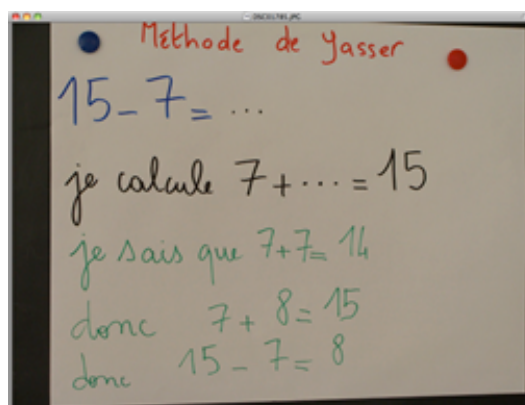 Méthode de Yasser
15 - 7 = ...
je calcule 7 + ... = 15
je sais que 7 + 7 = 14
donc 7 + 8 = 15
donc 15 - 7 = 8